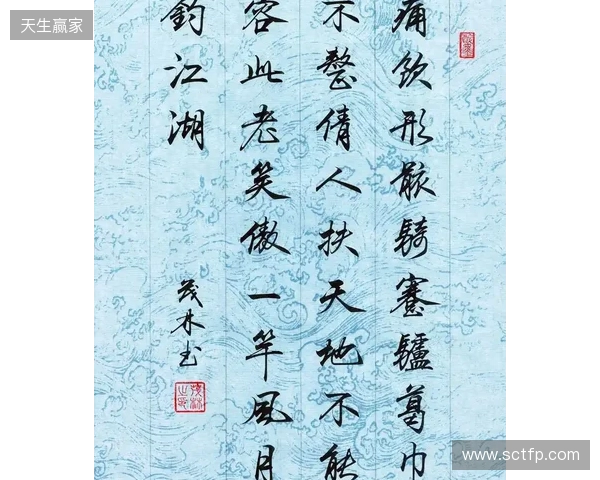 天生赢家
痛飲形骸騎蹇驢葛巾
不整倩人扶天地不能
容此老笑傲一竿風月
釣江湖
茂林书
www.sctfp.com